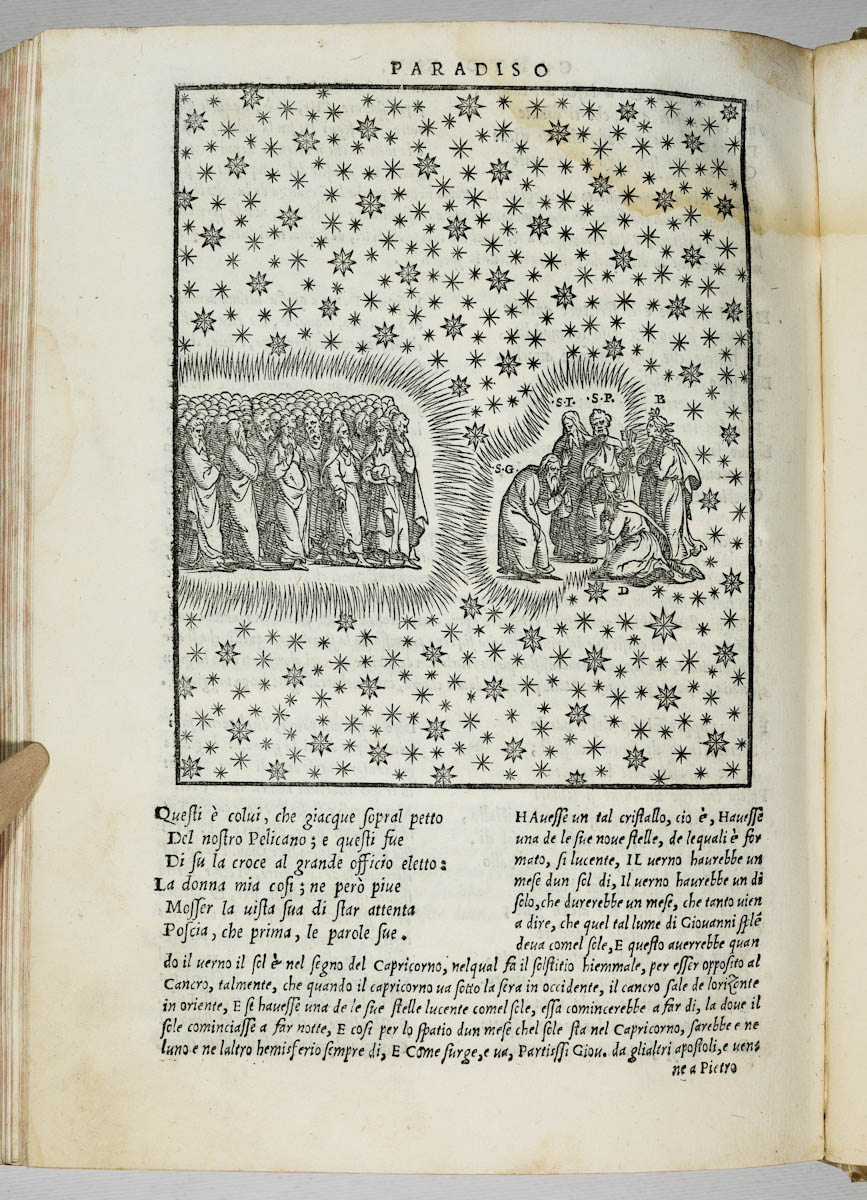 PARADISO
·S·I· ·S·P· B
·S·G·
D
Questi è colui, che giacque sopral petto
Del nostro Pelicano; e questi fue
Di su la croce al grande officio eletto:
La donna mia cosi; ne però piue
Mosser la uista sua di star attenta
Poscia, che prima, le parole sue.
HAuesse un tal cristallo, cio è, Hauesse
una de le sue noue stelle, de lequali è for
mato, si lucente, IL uerno haurebbe un
mese dun sol di, Il uerno haurebbe un di
solo, che durerebbe un mese, che tanto uien
a dire, che quel tal lume di Giouanni splē
deua comel sole, E questo auerrebbe quan
do il uerno il sol è nel segno del Capricorno, nelqual fa il solstitio hiemmale, per esser opposito al
Cancro, talmente, che quando il capricorno ua sotto la sera in occidente, il cancro sale de lorizonte
in oriente, E se hauesse una de le sue stelle lucente comel sole, essa comincerebbe a far di, la doue il
sole cominciasse a far notte, E cosi per lo spatio dun mese chel sole sta nel Capricorno, sarebbe e ne
luno e ne laltro hemisferio sempre di, E Come surge, e ua, Partissi Giou. da glialtri apostoli, e uen=
ne a Pietro